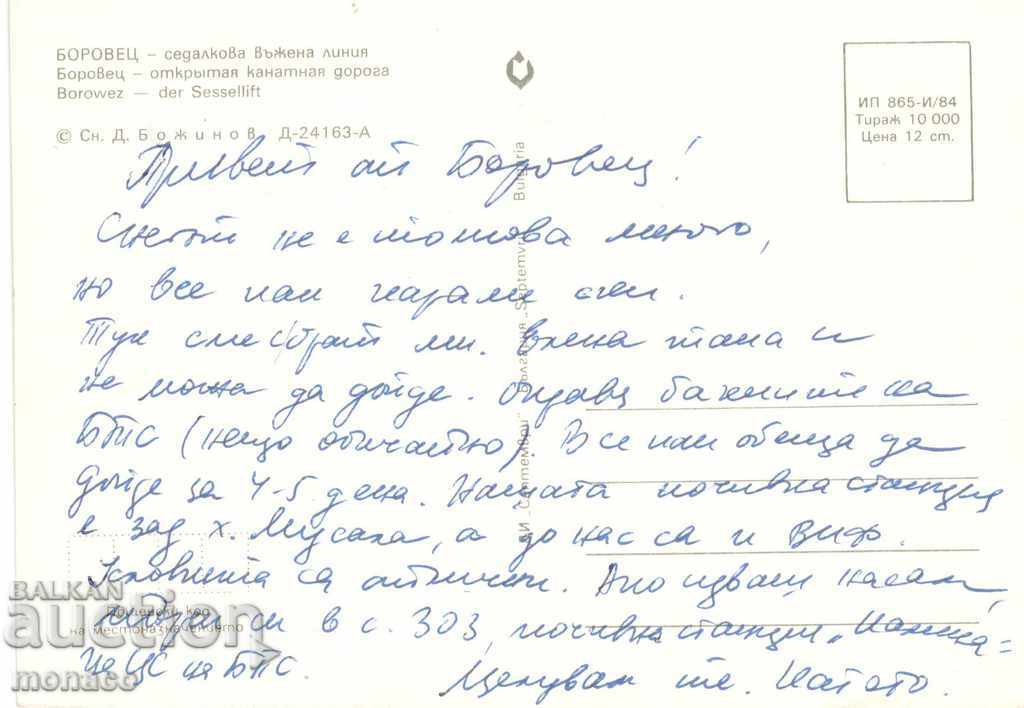 БОРОВЕЦ – седалкова въжена линия
Боровец – открытая канатная дорога
Borowez — der Sessellift
© Сн. Д. Божинов Д-24163-А
ИП 865-И/84
Тираж 10 000
Цена 12 ст.
ДИ „Септември" България „Septemvri" Bulgaria
Привет от Боровец!
Снегът не е толкова много,
но все пак караме ски.
Тук сме с брат ми.
не можа да дойде.
БПС (нещо обичайно). Все пак обеща да
дойде за 4-5 дена. Нашата почивна станция
е зад х. Мусала, а до нас са и ВИФ.
Условията са отлични. Ако идваш насам,
ми в с. 303, почивна станция
на ЦС на БПС.
Целувам те. Натото.
Пощенски код
на местоназначението
BALKAN
auction
monaco